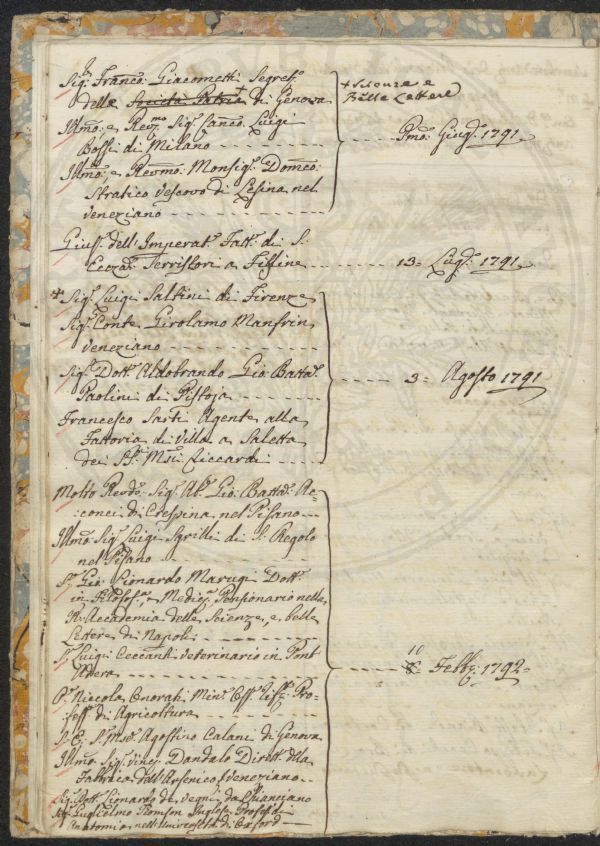 Sig.r Franco: Giacometti Segret.o
della Società Patria + di Genova
+ Scienze e
Belle Lettere
Illmo: e Rev.mo Sig.r Canco. Luigi
Bossi di Milano - - - - - - Pmo: Giug.o 1791
Illmo: e Revmo: Monsig.r Domco:
Stratico Vescovo di Lesina nel
Veneziano - - - - - - - - -
Gius.e dell' Imperat.e Fatt.e di S.
Terristori a - - - - - - 13= Lug.o 1791
+ Sig.r Luigi Saltini di Firenze
Sig.r Conte Girolamo Manfrin
Veneziano - - - - - - - -
Sig.r Dott.e Aldobrando Gio: Batta.
Paolini di Pistoja - - - - - - 3= Agosto 1791
Francesco Sarti Agente alla
Fattoria di Villa a Saletta
dei SS.ri Riccardi - - - -
Molto Revdo: Sig.r Ab.e Gio: Batta. Ac-
:conci di Crespina nel Pisano - -
Illmo: Sig.r Luigi Sgrilli di S. Regolo
nel Pisano - - - - - -
S.r Gio: Lionardo Marugi Dott.e
in Filosof.a, e Medic.a Pensionario nella
R. Accademia delle Scienze, e belle
Lettere di Napoli - - - - - -
S.r Luigi Ceccanti Veterinario in Pont
Adera - - - - - - - - - 10 8= Febb.o 1792=
P. Niccola Onorati Min.e Pro-
fess.e di Agricoltura - - - - - -
S.E. S. Agostino Calani di Genova
Illmo: Sig.r Vinc.o Dandalo Dirett.e dlla
Fabbrica dell' Arsenico Veneziano - -
Sig.r Dott.e Lionardo de Vegni da Chianciano
Sig.r Guglielmo Tomson Inglese Profess.e di
Anatomia nell' Università di Oxford -